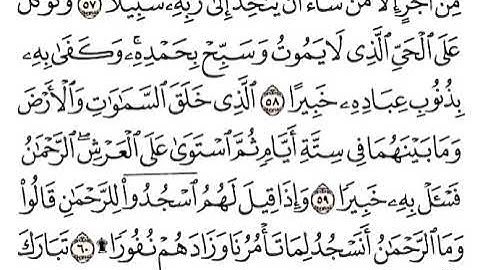 مِنْ أَجْرٍ إِلَّا مَن شَآءَ أَن يَتَّخِذَ إِلَىٰ رَبِّهِۦ سَبِيلًا ٥٧ وَتَوَكَّلْ
عَلَى ٱلْحَىِّ ٱلَّذِى لَا يَمُوتُ وَسَبِّحْ بِحَمْدِهِۦۚ وَكَفَىٰ بِهِۦ
بِذُنُوبِ عِبَادِهِۦ خَبِيرًا ٥٨ ٱلَّذِى خَلَقَ ٱلسَّمَٰوَٰتِ وَٱلْأَرْضَ
وَمَا بَيْنَهُمَا فِى سِتَّةِ أَيَّامٍ ثُمَّ ٱسْتَوَىٰ عَلَى ٱلْعَرْشِۚ ٱلرَّحْمَٰنُ
فَسْـَٔلْ بِهِۦ خَبِيرًا ٥٩ وَإِذَا قِيلَ لَهُمُ ٱسْجُدُوا۟ لِلرَّحْمَٰنِ قَالُوا۟
وَمَا ٱلرَّحْمَٰنُ أَنَسْجُدُ لِمَا تَأْمُرُنَا وَزَادَهُمْ نُفُورًا ۩ ٦٠ تَبَارَكَ